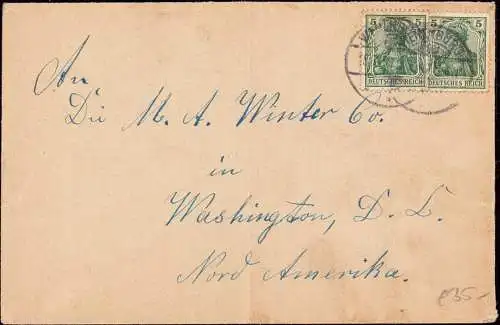 5 5 5
DEUTSCHES REICH DEUTSCHES REICH
An
Die M. A. Winter Co.
in
Washington, D. C.
Nord Amerika.
€35-